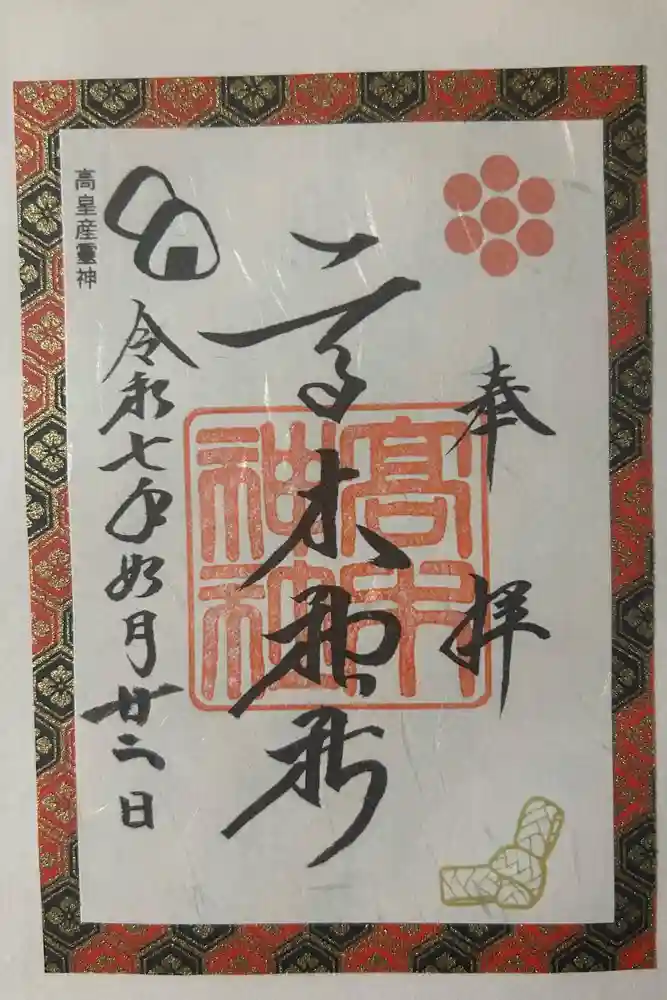 奉拝
高木神社
高木神社
高皇産靈神
令和七年如月廿二日